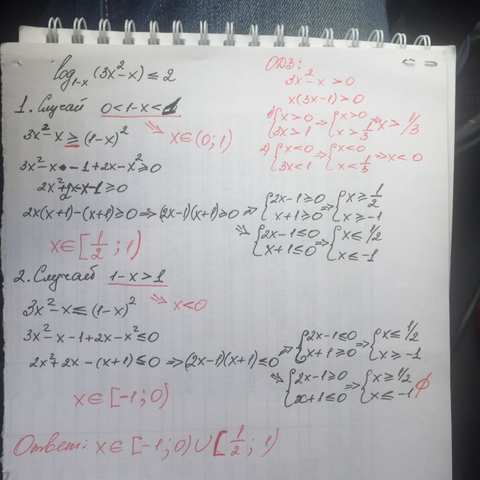 log₁₋ₓ(3x²-x) ≤ 2
ОДЗ:
3x²-x>0
x(3x-1)>0
1) {x>0 3x>1 ⇒ {x>0 x>1/3 ⇒ x>1/3
2) {x<0 3x<1 ⇒ {x<0 x<1/3 ⇒ x<0
1. Случай 0<1-x<1
⇒ x∈(0;1)
3x²-x ≥ (1-x)²
3x²-x-1+2x-x²≥0
2x²+x-1≥0
2x(x+1)-(x+1)≥0 ⇒ (2x-1)(x+1)≥0 ⇒ {2x-1≥0 x+1≥0 ⇒ {x≥1/2 x≥-1
⇒ {2x-1≤0 x+1≤0 ⇒ {x≤1/2 x≤-1
x∈[1/2;1)
2. Случай 1-x>1
⇒ x<0
3x²-x≤(1-x)²
3x²-x-1+2x-x²≤0
2x²+2x-(x+1)≤0 ⇒ (2x-1)(x+1)≤0 ⇒ {2x-1≤0 x+1≥0 ⇒ {x≤1/2 x≥-1
⇒ {2x-1≥0 x+1≤0 ⇒ {x≥1/2 x≤-1 ∅
x∈[-1;0)
Ответ: x∈[-1;0)∪[1/2;1)